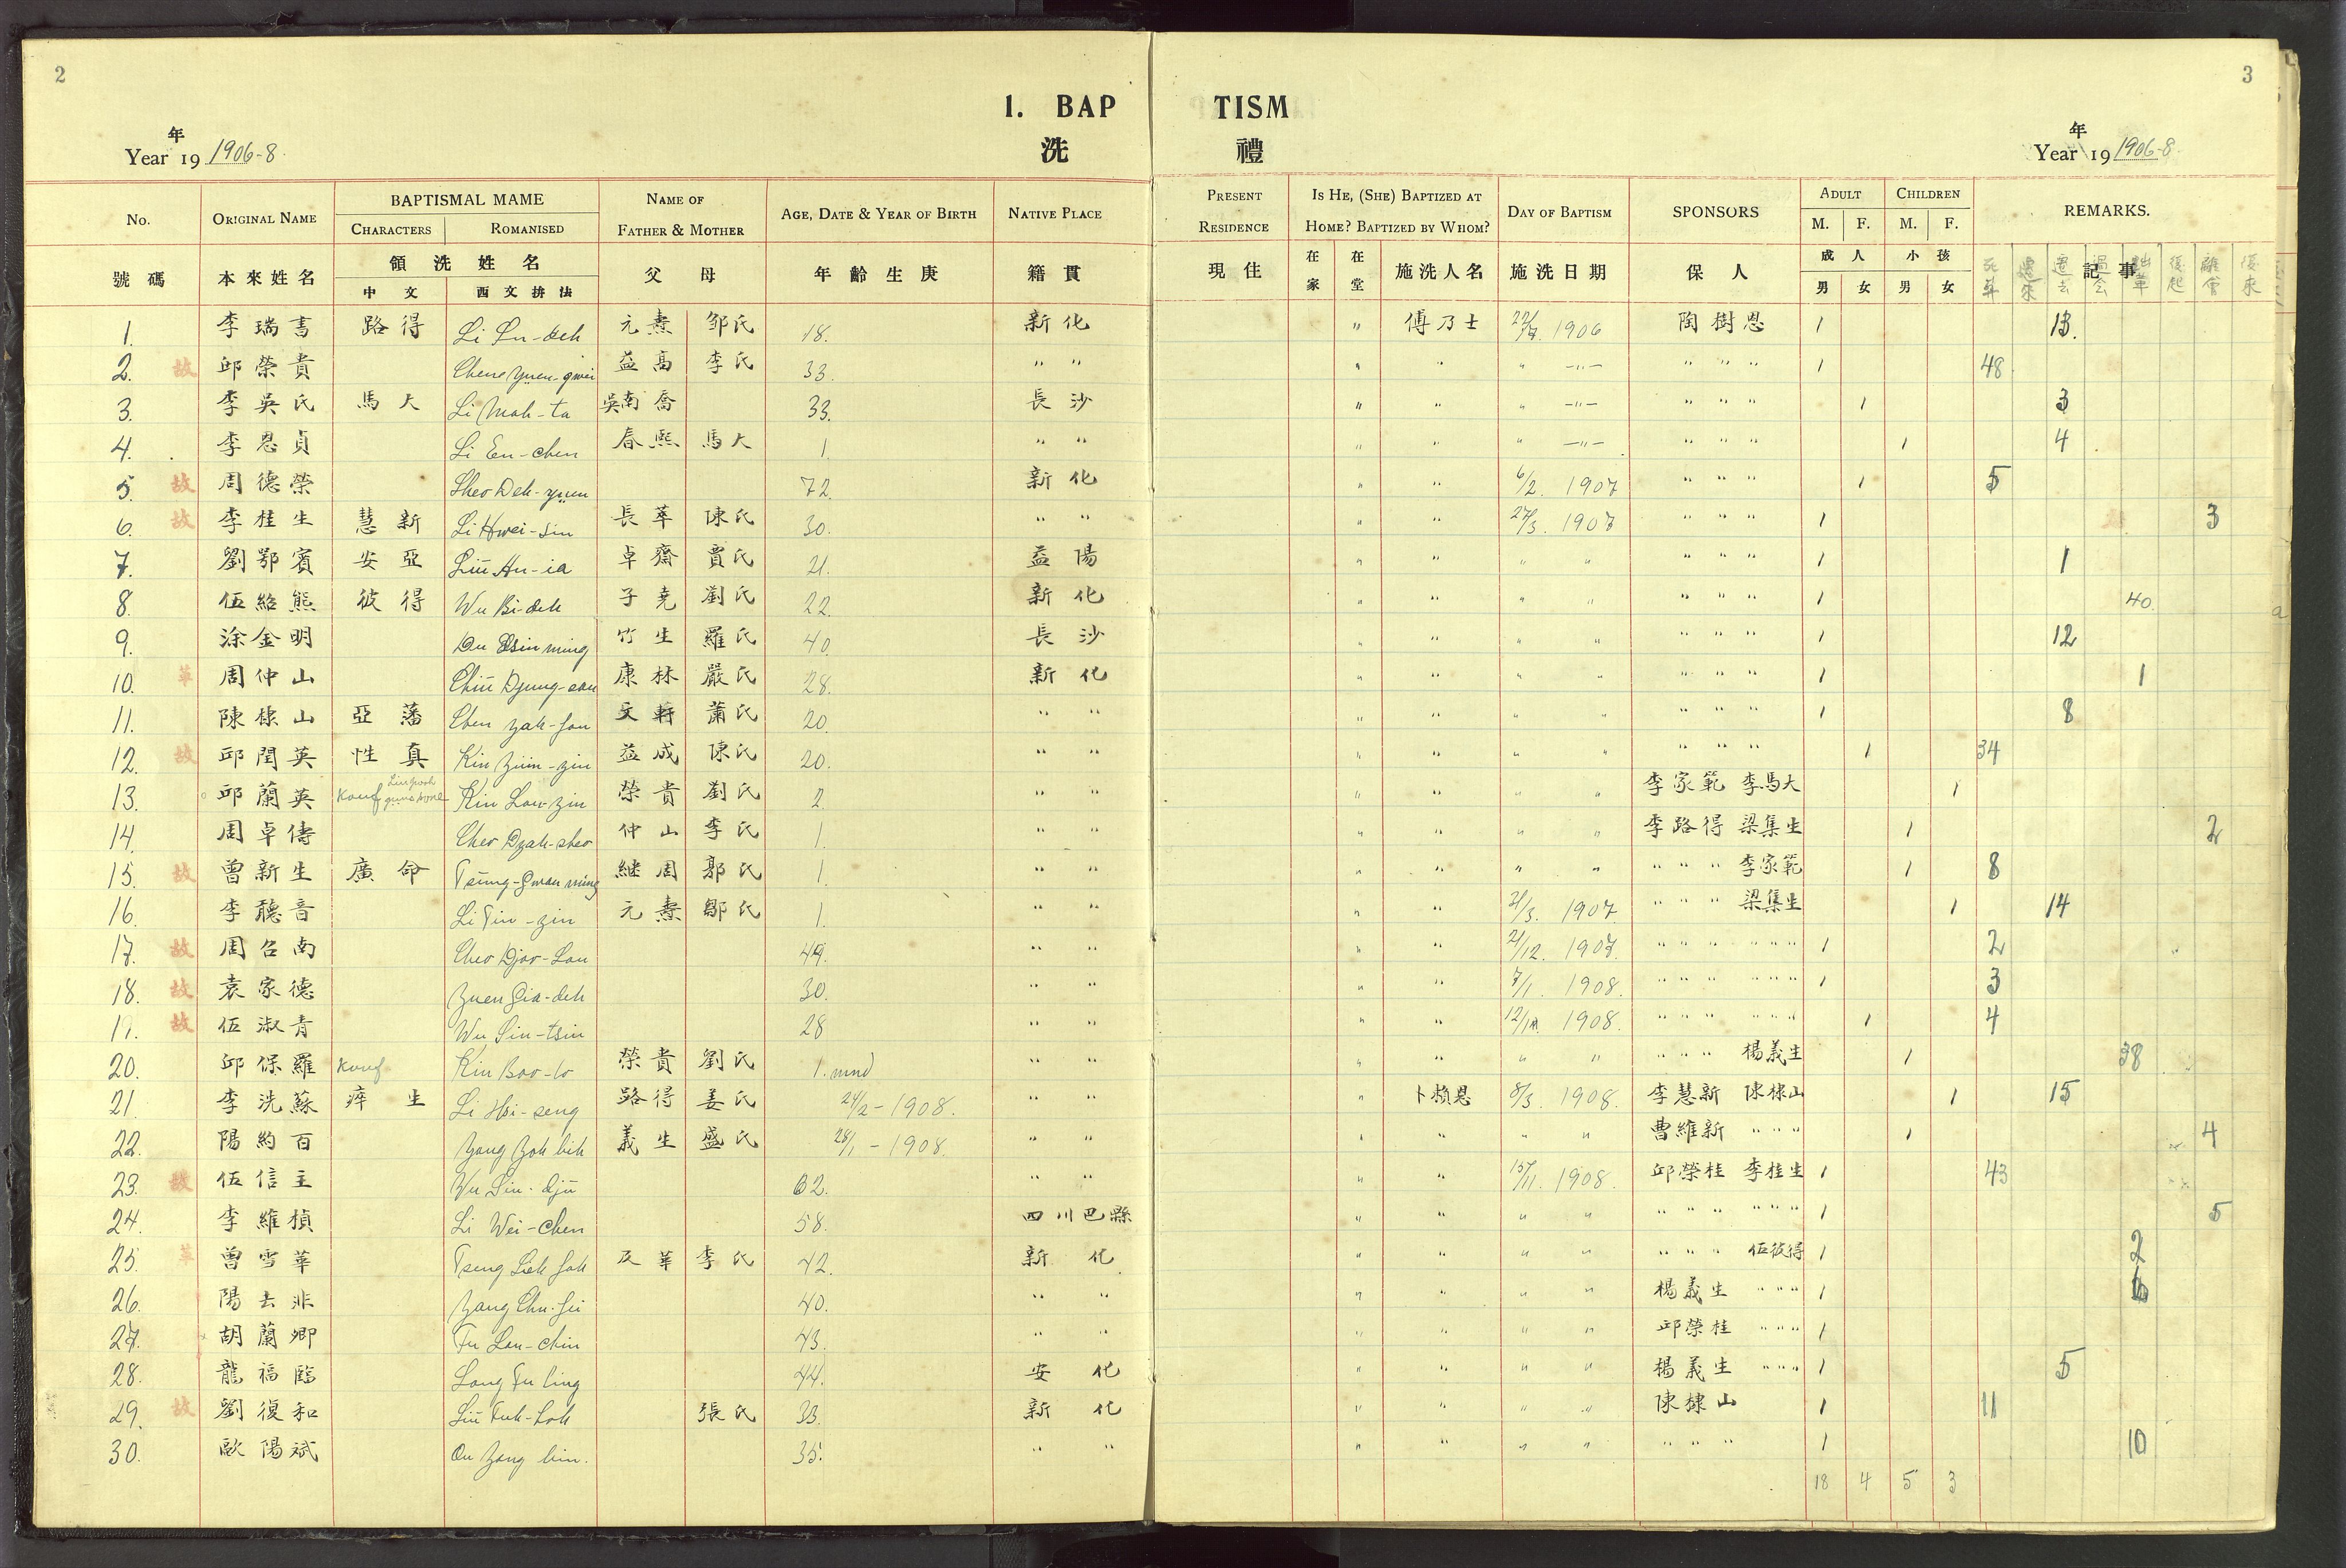 2
3
1. BAP TISM
洗 禮
年
Year 19 1906-8.
年
Year 19 1906-8
No. ORIGINAL NAME BAPTISMAL MAME NAME OF FATHER & MOTHER AGE, DATE & YEAR OF BIRTH NATIVE PLACE PRESENT RESIDENCE IS HE, (SHE) BAPTIZED AT HOME? BAPTIZED BY WHOM? DAY OF BAPTISM SPONSORS ADULT CHILDREN REMARKS.
CHARACTERS ROMANISED M. F. M. F.
號碼 本來姓名 領洗姓名 父 母 年齡生庚 籍貫 現住 在家 在堂 施洗人名 施洗日期 保人 成人 小孩 記事
中文 西文拚法 男 女 男 女
1. 李瑞書 路得 Li Lu-deh 元燾 邹氏 18. 新化 " 傅乃士 1906 陶樹恩 1 13.
2. 故 邱榮貴 益高 李氏 33. " " " " " -"- " " " 1 48
3. 李吳氏 馬大 Li Mah-ta 吳南喬 33. 長沙 " " " -"- " " " 1 3
4. 李恩貞 Li En-chen 春熙 馬大 1. " " " " " -"- " " " 1 4
5. 故 周德榮 72. 新化 " " 6/2. 1907 " " " 1 5
6. 故 李桂生 慧新 Li Hwei-sin 長萃 陳氏 30. " " " " 27/3. 1907 " " " 1 3
7. 劉鄂賓 安亞 Liü An-ia 卓齋 賈氏 21. 益陽 " " " " " " " 1 1
8. 伍紹熊 彼得 Wu Bi-deh 子堯 劉氏 22. 新化 " " " " " " " 1 40.
9. 涂金明 竹生 羅氏 40. 長沙 " " " " " " " 1 12
10. 革 周仲山 康林 嚴氏 28. 新化 " " " " " " " 1 1
11. 陳棣山 亞藩 文軒 蕭氏 20. " " " " " " " " " 1 8
12. 故 邱閏英 性真 Kiu Züin-zin 益成 陳氏 20. " " " " " " " " " 1 34
13. 邱蘭英 Kiu Lan-zin 榮貴 劉氏 2. " " " " " " 李家範 李馬大 1
14. 周卓儔 仲山 李氏 1. " " " " " " 李路得 梁集生 1 2
15. 故 曾新生 廣命 継周 郭氏 1. " " " " " " " " " 李家範 1 8
16. 李聽音 Li Tin-zin 元燾 鄒氏 1. " " " " 21/3. 1907. " " " 梁集生 1 14
17. 故 周召南 49. " " " " 21/12. 1907. " " " " " " 1 2
18. 故 袁家德 Yuen Gia-deh 30. " " " " 7/1. 1908. " " " " " " 1 3
19. 故 伍淑青 28 " " " " 1908. " " " " " " 1 4
20. 邱保羅 Kiu Bao-lo 榮貴 劉氏 " " " " " " " " " 楊義生 1 38
21. 李洗蘇 瘁生 Li Hsi-seng 路得 姜氏 24/2-1908. " " " 卜賴恩 8/3. 1908. 李慧新 陳棣山 1 15
22. 陽約百 義生 盛氏 28/1-1908. " " " " " " 曹維新 " " " 1 4
23. 故 伍信主 Wu Sin-djü 62. " " " " 15/11. 1908. 邱榮桂 李桂生 1 43
24. 李維楨 Li Wei-chen 58. 四川巴縣 " " " " " " " " " " 1 5
25. 革 曾雪華 及華 李氏 42. 新化 " " " " " " " 伍彼得 1 2
26. 陽去非 Yang Chu-fei 40. " " " " " " 楊義生 " " " 1
27. 胡蘭卿 Fu Lan-chin 43. " " " " " " 邱榮桂 " " " 1
28. 龍福臨 Long Fu ling 44. 安化 " " " " 楊義生 " " " 1 5
29. 故 劉復和 張氏 33. 新化 " " " " 陳棣山 1 11
30. 歐陽斌 Ou Yang bin. 35. " " " " " " " " " 1 10
18 4 5 3